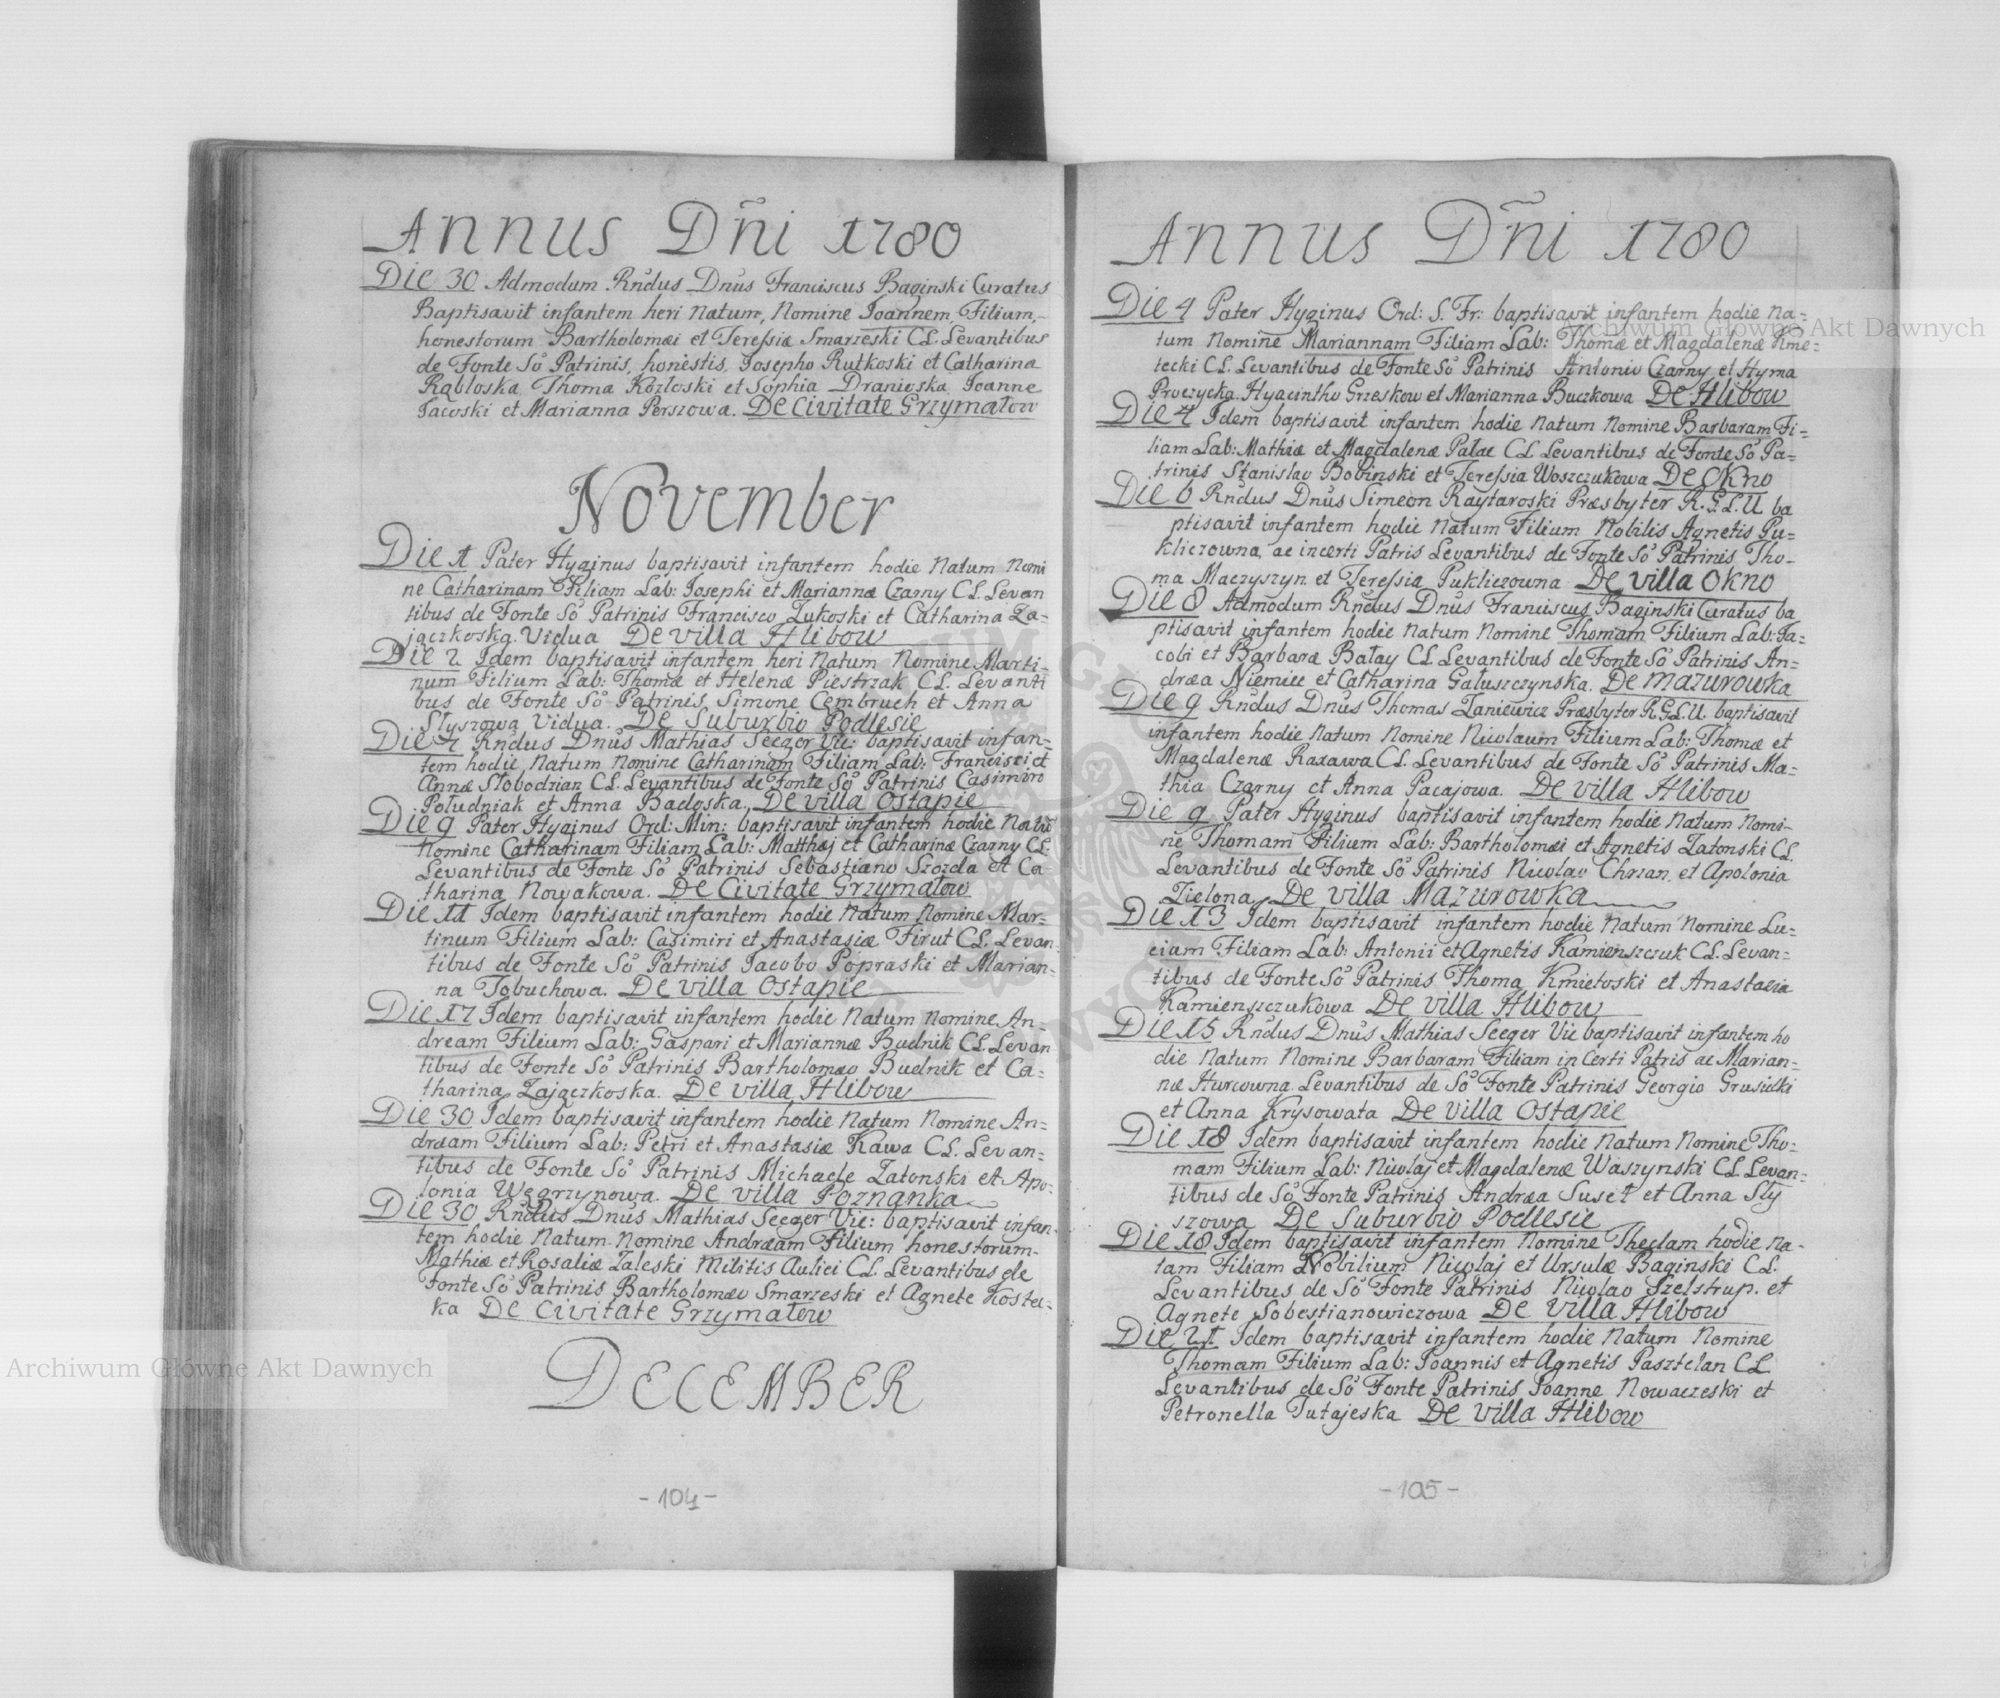 Annus Dñi 1780
Die 30 Admodum Rñdus Dnus Franciscus Baginski Curatus
Baptisavit infantem heri natum, Nomine Joannem, Filium,
honestorum Bartholomæi et Teressiæ Smarzeski CL. Levantibus
de Fonte So Patrinis, honestis, Josepho Rutkoski et Catharina
Rabloska Thoma Kozloski et Sophia Dranioska Joanne
Jacoski et Marianna Perszowa. De Civitate Grzymałow
November
Die 1 Pater Hyginus baptisavit infantem hodie Natum Nomi
ne Catharinam Filiam Lab: Josephi et Mariannæ Czarny CL. Levan
tibus de Fonte So Patrinis Francisco Zukoski et Catharina Za=
jączkoska. Vidua De villa Hlibow
Die 2 Idem baptisavit infantem heri Natum Nomine Marti=
num Filium Lab: Thomæ et Helenæ Piestrzak CL. Levanti
bus de Fonte So Patrinis, Simone Cembruch et Anna
Słyszowa Vidua. De Suburbio Podlesie
Die 7 Rñdus Dnus Mathias Seeger Vic: baptisavit infan=
tem hodie Natum Nomine Catharinam Filiam Lab: Francisci et
Annæ Słobodzian CL. Levantibus de Fonte So Patrinis Casimiro
Południak et Anna Badoska. De villa Ostapie
Die 9 Pater Hyginus Ord: Min: baptisavit infantem hodie Natũ
Nomine Catharinam Filiam Lab: Matthæj et Catharinæ Czarny CL.
Levantibus de Fonte So Patrinis Sebastiano Szozda et Ca=
tharina Nowakowa. De Civitate Grzymałow
Die 11 Idem baptisavit infantem hodie Natum Nomine Mar=
tinum Filium Lab: Casimiri et Anastasiæ Firut CL. Levan
tibus de Fonte So Patrinis Jacobo Popraski et Marian=
na Tobuchowa. De villa Ostapie
Die 17 Idem baptisavit infantem hodie Natum Nomine An=
dream Filium Lab: Gaspari et Mariannæ Budnik CL. Levan
tibus de Fonte So Patrinis Bartholomæo Budnik et Ca=
tharina Zajączkoska. De villa Hlibow
Die 30 Idem baptisavit infantem hodie Natum Nomine An=
dræam Filium Lab: Petri et Anastasiæ Kawa CL. Levan=
tibus de Fonte So Patrinis Michaele Zatonski et Apo=
lonia Węgrzynowa. De villa Poznanka
Die 30 Rñdus Dnus Mathias Seeger Vic: baptisavit infan
tem hodie Natum Nomine Andræam Filium honestorum
Mathiæ et Rosaliæ Zaleski Militis Aulici CL. Levantibus de
Fonte So Patrinis Bartholomæo Smarzeski et Agnete Kostec=
ka De Civitate Grzymałow
DECEMBER
-104-
Annus Dñi 1780
Die 4 Pater Hyginus Ord: S. Fr: baptisavit infantem hodie Na=
tum Nomine Mariannam Filiam Lab: Thomæ et Magdalenæ Kme=
tecki CL. Levantibus de Fonte So Patrinis Antonio Czarny et Hyma
Proczycka. Hyacintho Grzeskow et Marianna Buczkowa De Hlibow
Die 4 Idem baptisavit infantem hodie Natum Nomine Barbaram Fi=
liam Lab: Mathiæ et Magdalenæ Pałac CL Levantibus de Fonte So Pa=
trinis Stanislao Bobinski et Teressia Woszczukowa De Okno
Die 6 Rñdus Dnus Simeon Raytaroski Præsbyter R.G.L.U. ba
ptisavit infantem hodie Natum Filium Nobilis Agnetis Pu=
kliczowna, ac incerti Patris Levantibus de Fonte So Patrinis Tho=
ma Maczyszyn et Teressia Pukliczowna De villa Okno
Die 8 Admodum Rñdus Dnus Franciscus Baginski Curatus ba
ptisavit infantem hodie Natum Nomine Thomam Filium Lab: Ja=
cobi et Barbaræ Bałay CL Levantibus de Fonte So Patrinis An=
dræa Niemiec et Catharina Gałuszczynska. De Mazurowka
Die 9 Rñdus Dnus Thomas Zaniewicz Præsbyter R.G.L.U. baptisavit
infantem hodie Natum Nomine Nicolaum Filium Lab: Thomæ et
Magdalenæ Raxawa CL. Levantibus de Fonte So Patrinis Ma=
thia Czarny et Anna Pacajowa. De villa Hlibow
Die 9 Pater Hyginus baptisavit infantem hodie Natum Nomi=
ne Thomam Filium Lab: Bartholomæi et Agnetis Zatonski CL.
Levantibus de Fonte So Patrinis Nicolao Chrzan et Apolonia
Zielona. De villa Mazurowka
Die 13 Idem baptisavit infantem hodie Natum Nomine Lu=
ciam Filiam Lab: Antonii et Agnetis Kamienszczuk CL. Levan=
tibus de Fonte So Patrinis Thoma Kmietoski et Anastasia
Kamienszczukowa De villa Hlibow
Die 15 Rñdus Dnus Mathias Seeger Vic baptisavit infantem ho
die Natum Nomine Barbaram Filiam incerti Patris ac Marian=
næ Hurcowna Levantibus de So Fonte Patrinis Georgio Grusiecki
et Anna Krysowata De villa Ostapie
Die 18 Idem baptisavit infantem hodie Natum Nomine Tho=
mam Filium Lab: Nicolaj et Magdalenæ Waszynski CL Levan=
tibus de So Fonte Patrinis Andræa Suset et Anna Sły
szowa De Suburbio Podlesie
Die 18 Idem baptisavit infantem Nomine Theclam hodie Na=
tam Filiam Nobilium Nicolaj et Ursulæ Baginski CL.
Levantibus de So Fonte Patrinis Nicolao Szelstrup. et
Agnete Sobestianowiczowa De Villa Hlibow
Die 21 Idem baptisavit infantem hodie Natum Nomine
Thomam Filium Lab: Joannis et Agnetis Pasztelan CL
Levantibus de So Fonte Patrinis Joanne Nowaczeski et
Petronella Tutajeska De villa Hlibow
-105-
Archiwum Główne Akt Dawnych
Archiwum Główne Akt Dawnych